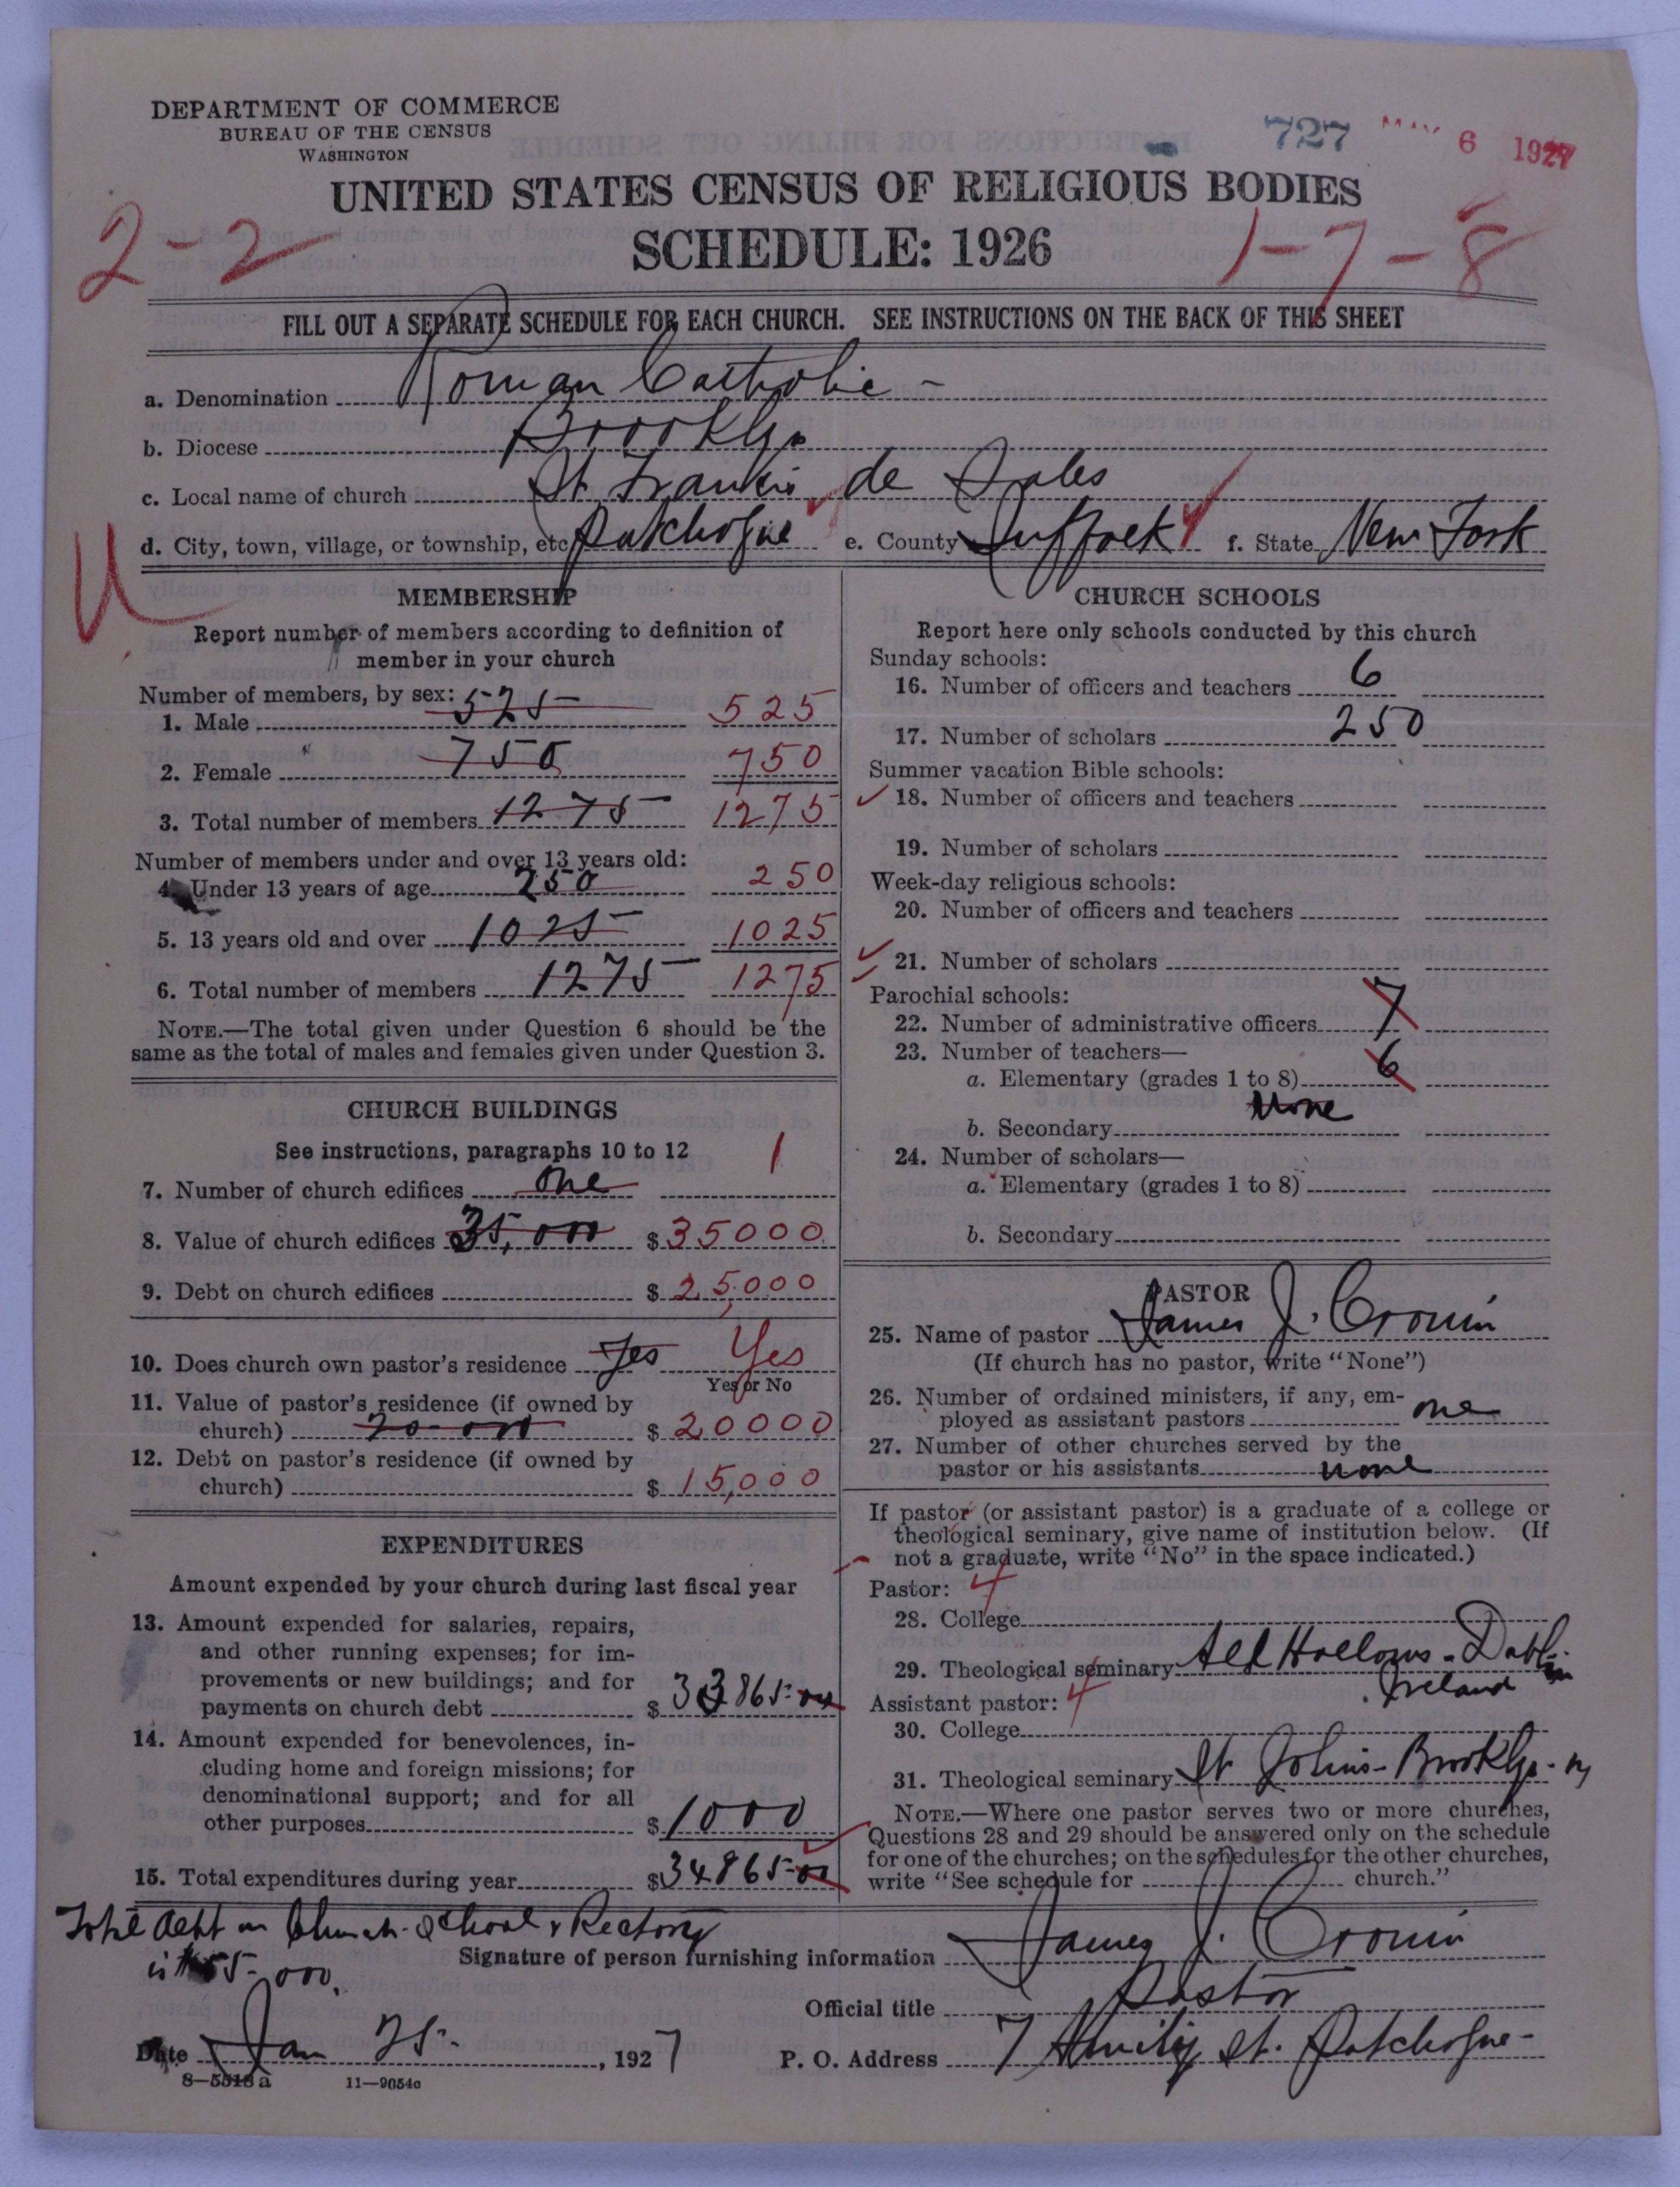 DEPARTMENT OF COMMERCE
BUREAU OF THE CENSUS
WASHINGTON
727 MAY 6 1927
UNITED STATES CENSUS OF RELIGIOUS BODIES
2-2 SCHEDULE: 1926 1-7-8
FILL OUT A SEPARATE SCHEDULE FOR EACH CHURCH. SEE INSTRUCTIONS ON THE BACK OF THIS SHEET
a. Denomination Roman Catholic -
b. Diocese Brooklyn
c. Local name of church St. Francis de Sales
d. City, town, village, or township, etc. Patchogue e. County Suffolk f. State New York
MEMBERSHIP
Report number of members according to definition of
member in your church
Number of members, by sex:
1. Male 525 525
2. Female 750 750
3. Total number of members 1275 1275
Number of members under and over 13 years old:
4. Under 13 years of age 250 250
5. 13 years old and over 1025 1025
6. Total number of members 1275 1275
NOTE.—The total given under Question 6 should be the
same as the total of males and females given under Question 3.
CHURCH BUILDINGS
See instructions, paragraphs 10 to 12
7. Number of church edifices one 1
8. Value of church edifices 35,000 $ 35000
9. Debt on church edifices $ 25,000
10. Does church own pastor's residence Yes Yes
Yes or No
11. Value of pastor's residence (if owned by
church) 20-000 $ 20000
12. Debt on pastor's residence (if owned by
church) $ 15,000
EXPENDITURES
Amount expended by your church during last fiscal year
13. Amount expended for salaries, repairs,
and other running expenses; for im-
provements or new buildings; and for
payments on church debt $ 33865.00
14. Amount expended for benevolences, in-
cluding home and foreign missions; for
denominational support; and for all
other purposes $ 1000
15. Total expenditures during year $ 34865.00
CHURCH SCHOOLS
Report here only schools conducted by this church
Sunday schools:
16. Number of officers and teachers 6
17. Number of scholars 250
Summer vacation Bible schools:
18. Number of officers and teachers
19. Number of scholars
Week-day religious schools:
20. Number of officers and teachers
21. Number of scholars
Parochial schools:
22. Number of administrative officers 7
23. Number of teachers—
a. Elementary (grades 1 to 8) 6
b. Secondary None
24. Number of scholars—
a. Elementary (grades 1 to 8)
b. Secondary
PASTOR
25. Name of pastor James J. Cronin
(If church has no pastor, write "None")
26. Number of ordained ministers, if any, em-
ployed as assistant pastors one
27. Number of other churches served by the
pastor or his assistants none
If pastor (or assistant pastor) is a graduate of a college or
theological seminary, give name of institution below. (If
not a graduate, write "No" in the space indicated.)
Pastor: 4
28. College
29. Theological seminary All Hallows - Dublin
Ireland
Assistant pastor: 4
30. College
31. Theological seminary St Johns - Brooklyn - ny
NOTE.—Where one pastor serves two or more churches,
Questions 28 and 29 should be answered only on the schedule
for one of the churches; on the schedules for the other churches,
write "See schedule for church."
Total debt on Church - School & Rectory
is $55-000.
Signature of person furnishing information James J. Cronin
Official title Pastor
Date Jan 25-, 1927 P. O. Address 7 St. Patchogue -
8—5518 a 11—9054c